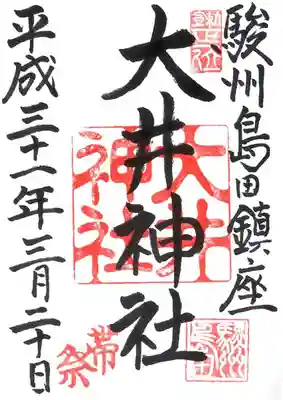 駿州島田鎮座
大井神社
大井神社
帯祭
駿州島田
平成三十一年三月二十日